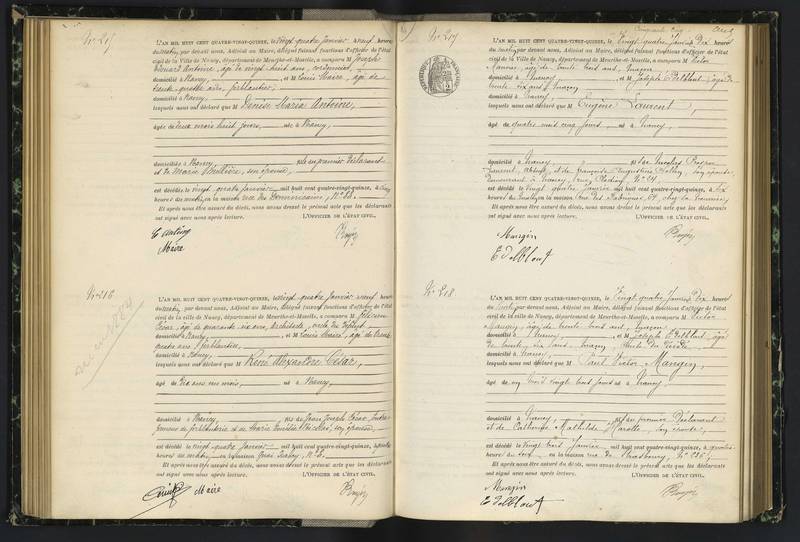 N° 215
L'AN MIL HUIT CENT QUATRE-VINGT-QUINZE, le vingt quatre Janvier à neuf heures
du matin, par devant nous, Adjoint au Maire, délégué faisant fonctions d'officier de l'état
civil de la Ville de Nancy, département de Meurthe-et-Moselle, a comparu M Joseph
Edouard Antoine, âgé de vingt huit ans,
domicilié à Nancy, et M Louis Maire, âgé de
trente quatre ans, ferblantier,
domicilié à Nancy,
lesquels nous ont déclaré que M Denise Maria Antoine,
âgée de deux mois huit jours, née à Nancy,
domiciliée à Nancy, fille du premier déclarant
et de Marie, son épouse,
est décédée le vingt quatre Janvier mil huit cent quatre-vingt-quinze, à cinq
heures du matin, en la maison rue des Dominicains, N° 88.
Et après nous être assuré du décès, nous avons dressé le présent acte que les déclarants
ont signé avec nous après lecture. L'OFFICIER DE L'ÉTAT CIVIL,
E Antoine
Maire
N° 216
L'AN MIL HUIT CENT QUATRE-VINGT-QUINZE, le vingt quatre Janvier neuf heures
du matin, par devant nous, Adjoint au Maire, délégué faisant fonctions d'officier de l'état
civil de la Ville de Nancy, département de Meurthe-et-Moselle, a comparu M
César, âgé de quarante six ans, architecte, oncle du défunt,
domicilié à Nancy, et M Louis Maire, âgé de trente
quatre ans, ferblantier,
domicilié à Nancy,
lesquels nous ont déclaré que M René Alexandre César,
âgé de dix ans un mois, né à Nancy,
domicilié à Nancy, fils de Jean Joseph César, entre-
preneur de ferblanterie et de Marie, son épouse,
est décédé le vingt quatre Janvier mil huit cent quatre-vingt-quinze, à
heures du matin, en sa maison
Et après nous être assuré du décès, nous avons dressé le présent acte que les déclarants
ont signé avec nous après lecture. L'OFFICIER DE L'ÉTAT CIVIL,
Maire
N° 217
L'AN MIL HUIT CENT QUATRE-VINGT-QUINZE, le Vingt quatre Janvier Dix heures
du matin, par devant nous, Adjoint au Maire, délégué faisant fonctions d'officier de l'état
civil de la Ville de Nancy, département de Meurthe-et-Moselle, a comparu M Victor
Mangin, âgé de trente trois ans, maçon
domicilié à Nancy, et M Joseph Edelblout, âgé de
trente six ans, maçon
domicilié à Nancy,
lesquels nous ont déclaré que M Eugène Laurent,
âgé de quatre mois cinq jours, né à Nancy,
domicilié à Nancy, fils de Nicolas Prosper
Laurent, absent, et de Françoise Augustine, son épouse,
demeurant à Nancy, rue N° 24,
est décédé le vingt quatre Janvier mil huit cent quatre-vingt-quinze, à six
heures du matin, en la maison rue des Fabriques, 64, chez la
Et après nous être assuré du décès, nous avons dressé le présent acte que les déclarants
ont signé avec nous après lecture. L'OFFICIER DE L'ÉTAT CIVIL,
Mangin
Edelblout
N° 218
L'AN MIL HUIT CENT QUATRE-VINGT-QUINZE, le Vingt quatre Janvier Dix heures
du matin, par devant nous, Adjoint au Maire, délégué faisant fonctions d'officier de l'état
civil de la Ville de Nancy, département de Meurthe-et-Moselle, a comparu M Victor
Mangin, âgé de trente trois ans, maçon
domicilié à Nancy, et M Joseph Edelblout, âgé
de trente six ans, maçon,
domicilié à Nancy,
lesquels nous ont déclaré que M Paul Victor Mangin,
âgé de un mois vingt trois jours né à Nancy,
domicilié à Nancy, fils du premier Déclarant
et de Catherine Mathilde Marotte, son épouse,
est décédé le vingt trois Janvier mil huit cent quatre-vingt-quinze, à quatre
heures du soir, en la maison rue de Strasbourg, N° 226
Et après nous être assuré du décès, nous avons dressé le présent acte que les déclarants
ont signé avec nous après lecture. L'OFFICIER DE L'ÉTAT CIVIL,
Mangin
Edelblout